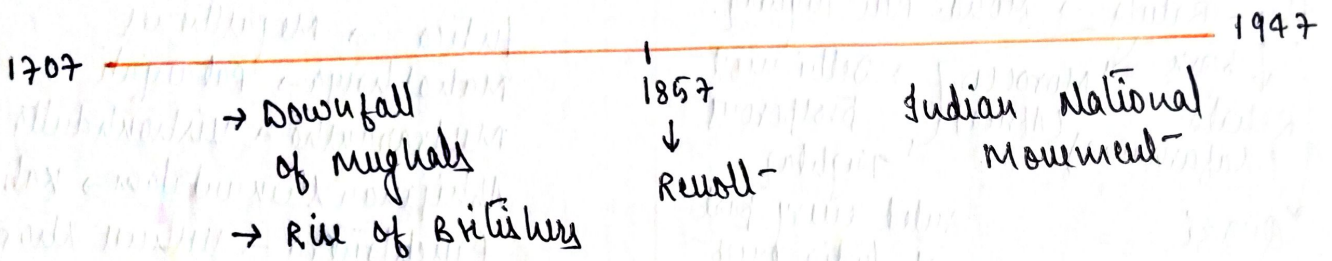 1707
1947
1857
→ Downfall
of Mughals
→ Rise of Britishers
↓
Revolt
Indian National
Movement